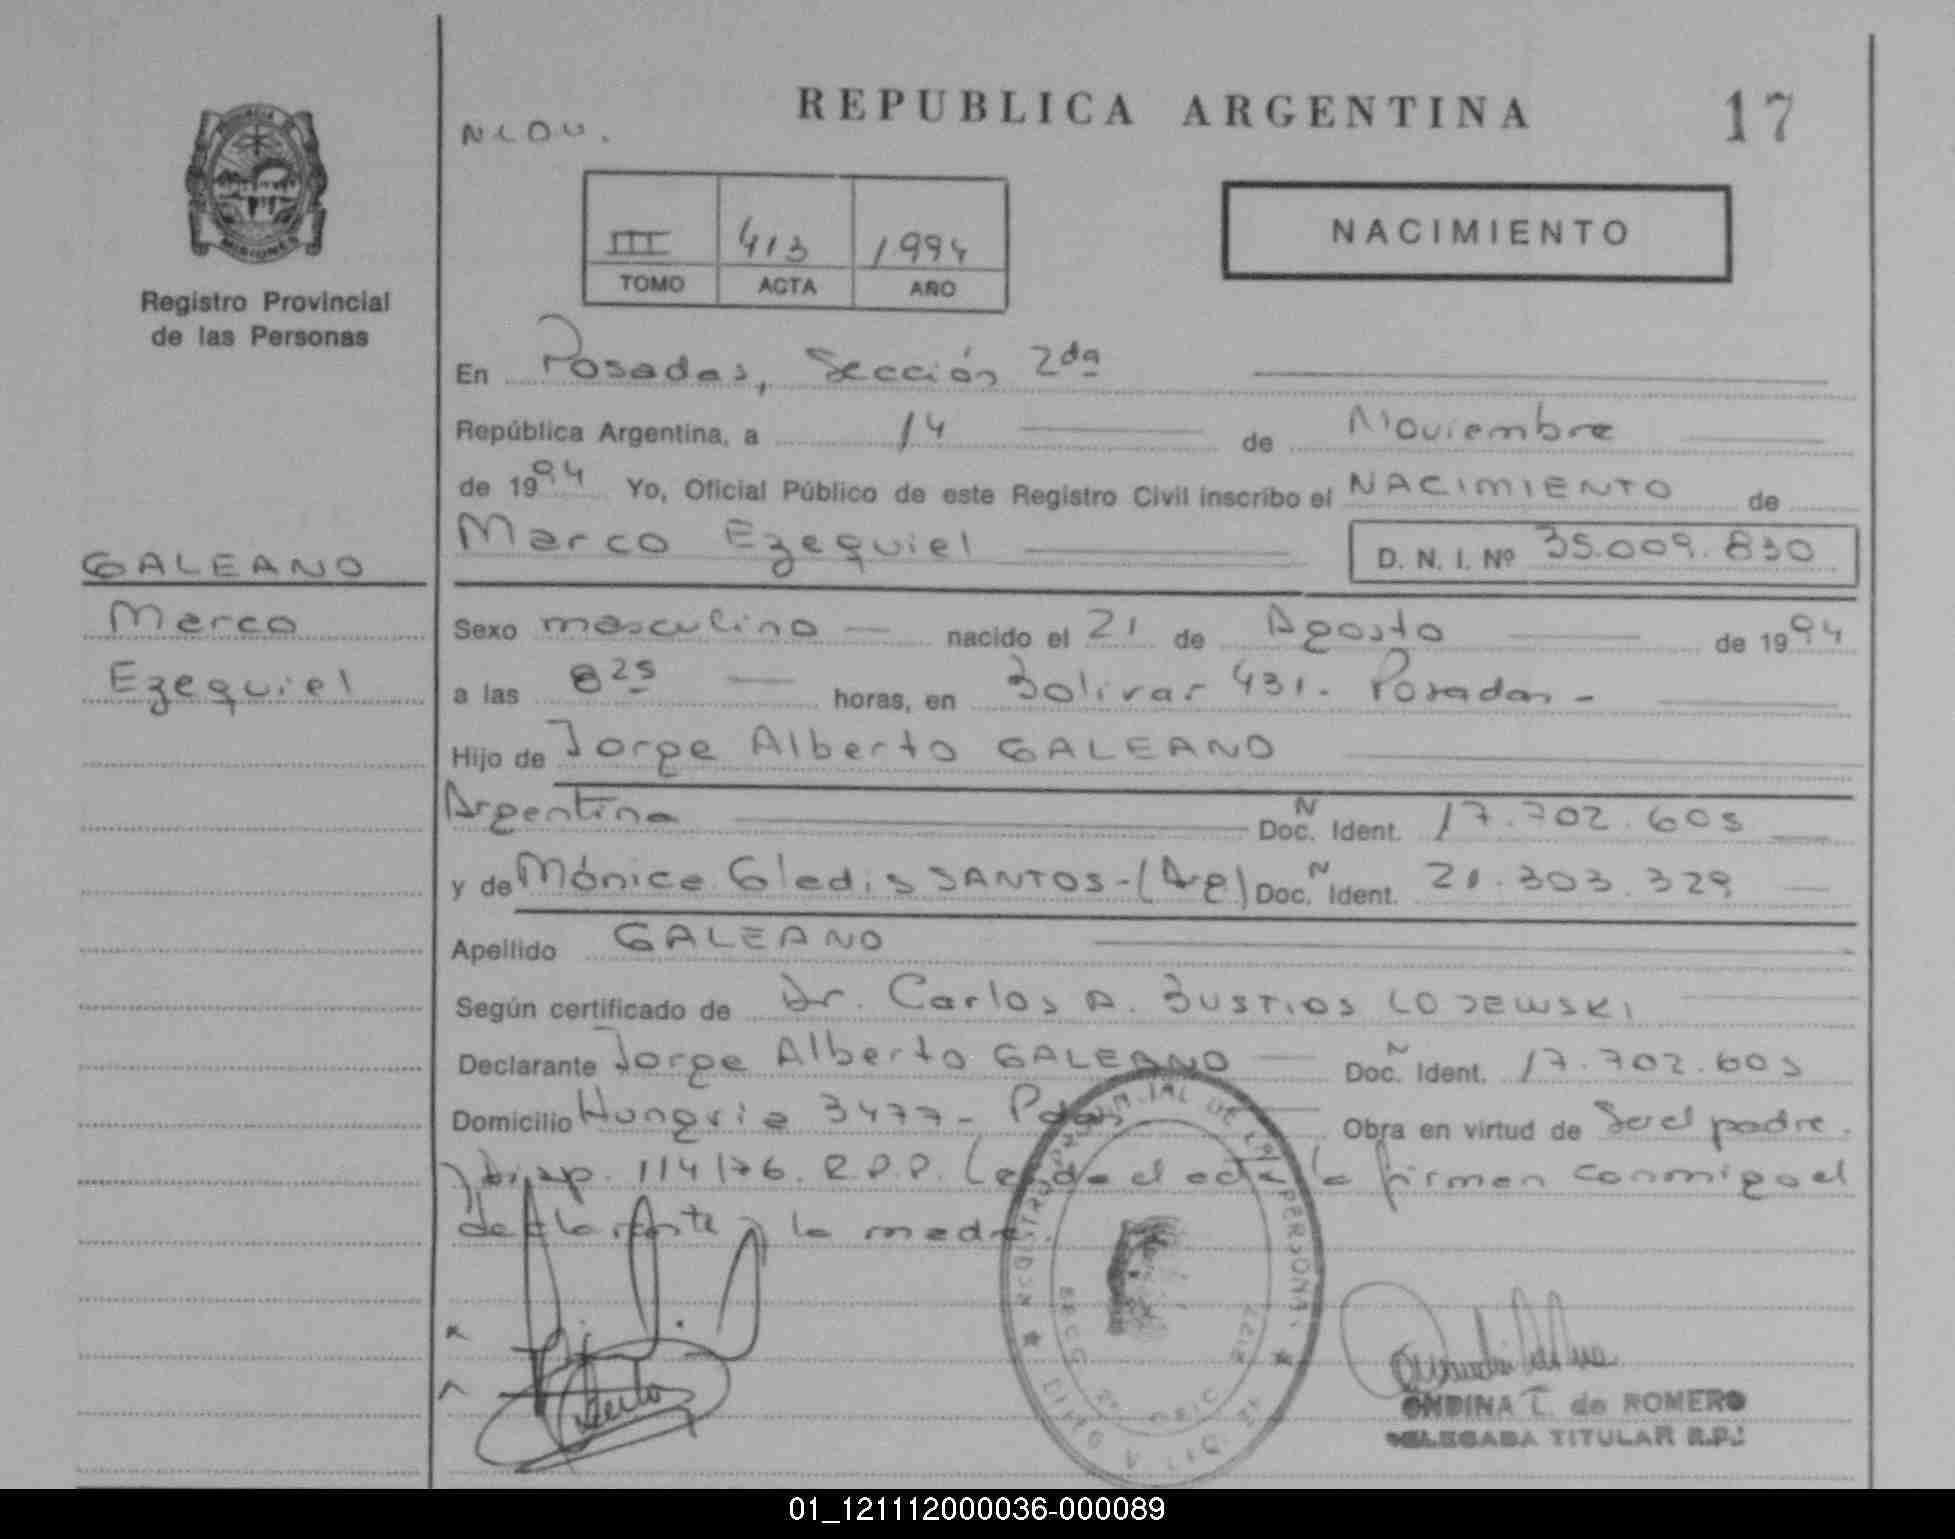 REPUBLICA ARGENTINA
17
MISIONES
Registro Provincial
de las Personas
III 413 1994
TOMO ACTA AÑO
NACIMIENTO
En Posadas, Sección 2da
República Argentina, a 14 de Noviembre
de 1994 Yo, Oficial Público de este Registro Civil inscribo el NACIMIENTO de
Marco Ezequiel D. N. I. Nº 35.009.830
GALEANO
Marco
Ezequiel
Sexo masculino nacido el 21 de Agosto de 1994
a las 8 25 horas, en Bolivar 431. Posadas -
Hijo de Jorge Alberto GALEANO
Argentina Doc. Ident. N 17.702.605
y de Mónica Gladis SANTOS - (Arg) Doc. Ñ Ident. 21.303.329
Apellido GALEANO
Según certificado de Dr. Carlos A. BUSTIOS LOJEWSKI
Declarante Jorge Alberto GALEANO Doc. Ñ Ident. 17.702.605
Domicilio Hungria 3477 - Pdas Obra en virtud de Ser el padre.
Disp. 114/76. R.P.P. Leida el acta la firman conmigo el
declarante y la madre.
ONDINA T. de ROMERO
DELEGADA TITULAR R.P.
01_121112000036-000089